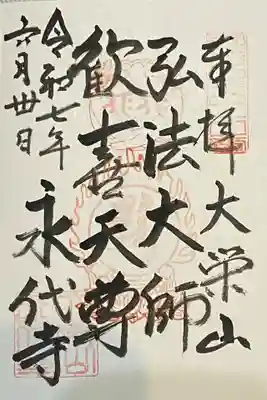 奉拝 大栄山
弘法大師
歓喜天尊
永代寺
令和七年
六月卅日